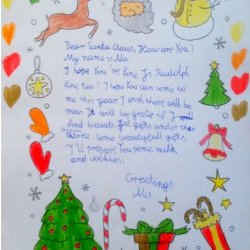 Dear Santa Claus, How are You?
My name is Ala.
I hope You're fine. Is Rudolph
fine too? I hope You can come to
me this year. I wish there will be
new. It will be great if I
find beautiful gifts under the
some beautyfull gifts.
I'll prepare You some milk
and cookies.
Greetings
Ala.